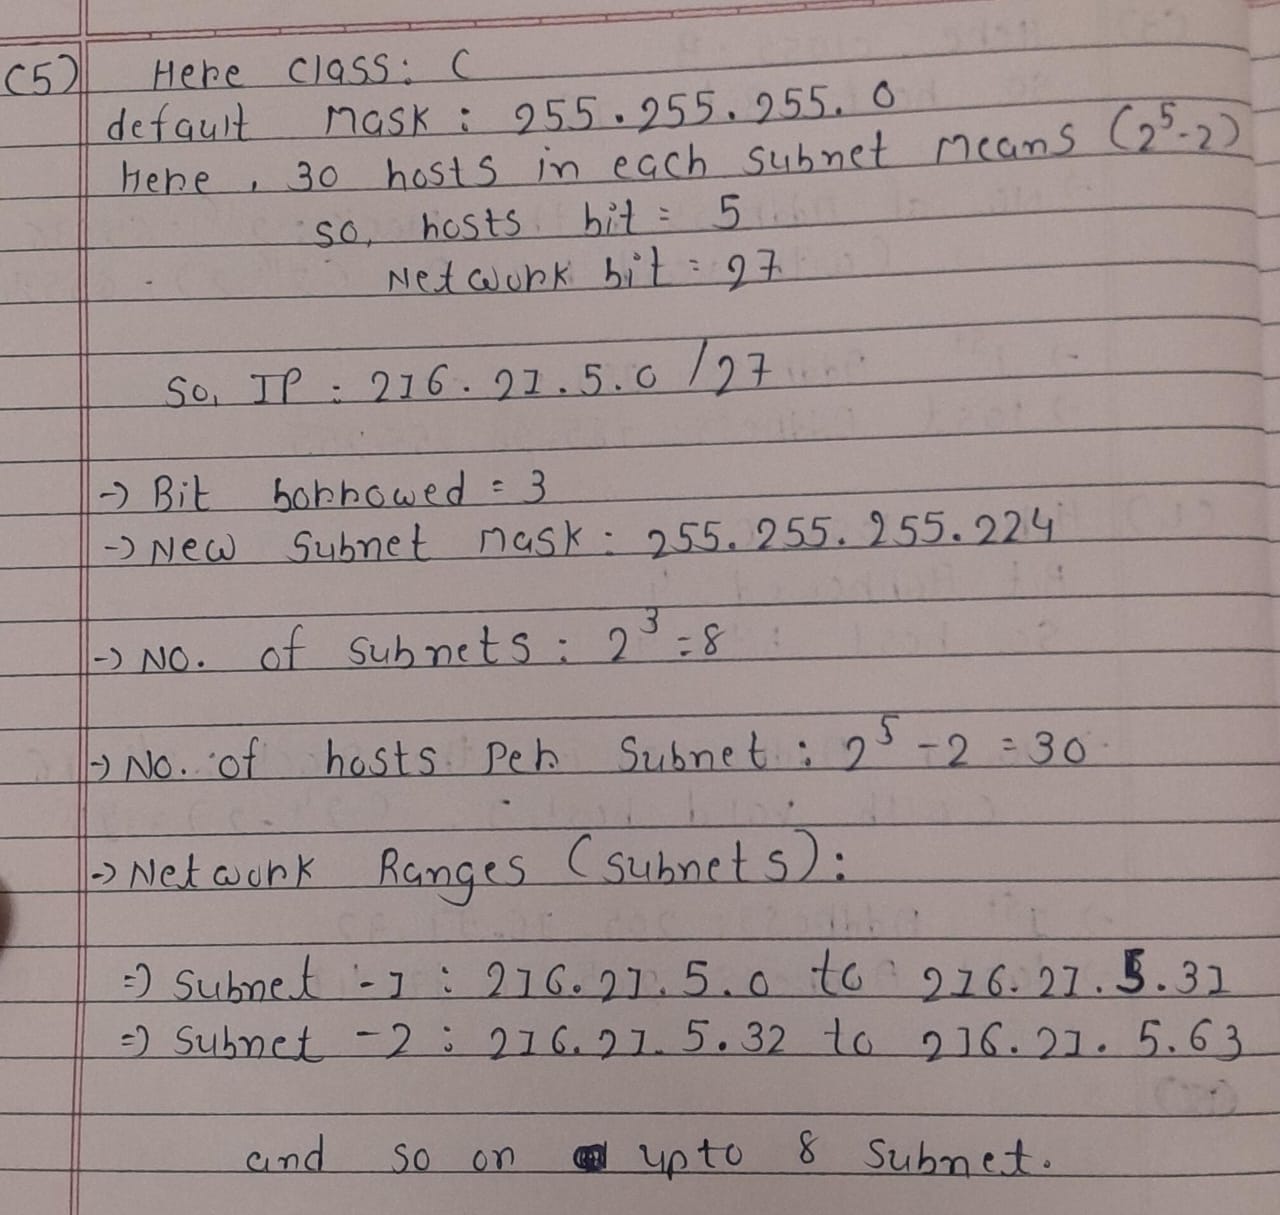 (5) Here class: C
default Mask : 255.255.255.0
Here, 30 hosts in each subnet means (2^5-2)
so, hosts bit = 5
Network bit = 27
So, IP : 216.21.5.0 /27
-> Bit borrowed = 3
-> New Subnet Mask : 255.255.255.224
-> No. of subnets : 2^3 = 8
-> No. of hosts Per Subnet : 2^5 - 2 = 30
-> Network Ranges (subnets):
=> Subnet -1 : 216.21.5.0 to 216.21.5.31
=> Subnet -2 : 216.21.5.32 to 216.21.5.63
and so on upto 8 Subnet.